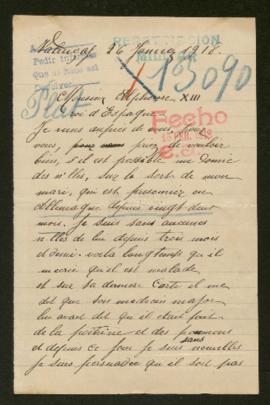 26 Janvier 1918.
Pedir informes
Que se hace así
13090
Monsieur Alphonse XIII
roi d'Espagne
Fecho
Je viens auprès de vous pour
vous prier de vouloir
bien, s'il est possible me donner
des nlles, sur le sort de mon
mari, qui est prisonnier en
Allemagne depuis vingt deux
mois. Je suis sans aucunes
nlles de lui depuis trois mois
et demi. voilà longtemps qu'il
m'écrit qu'il est malade
et sur sa dernière Carte il me
dit que son médecin major
lui avait dit qu'il était pris
de la poitrine et des poumons
et depuis ce jour je suis sans nouvelles
je suis persuadée qu'il soit pas